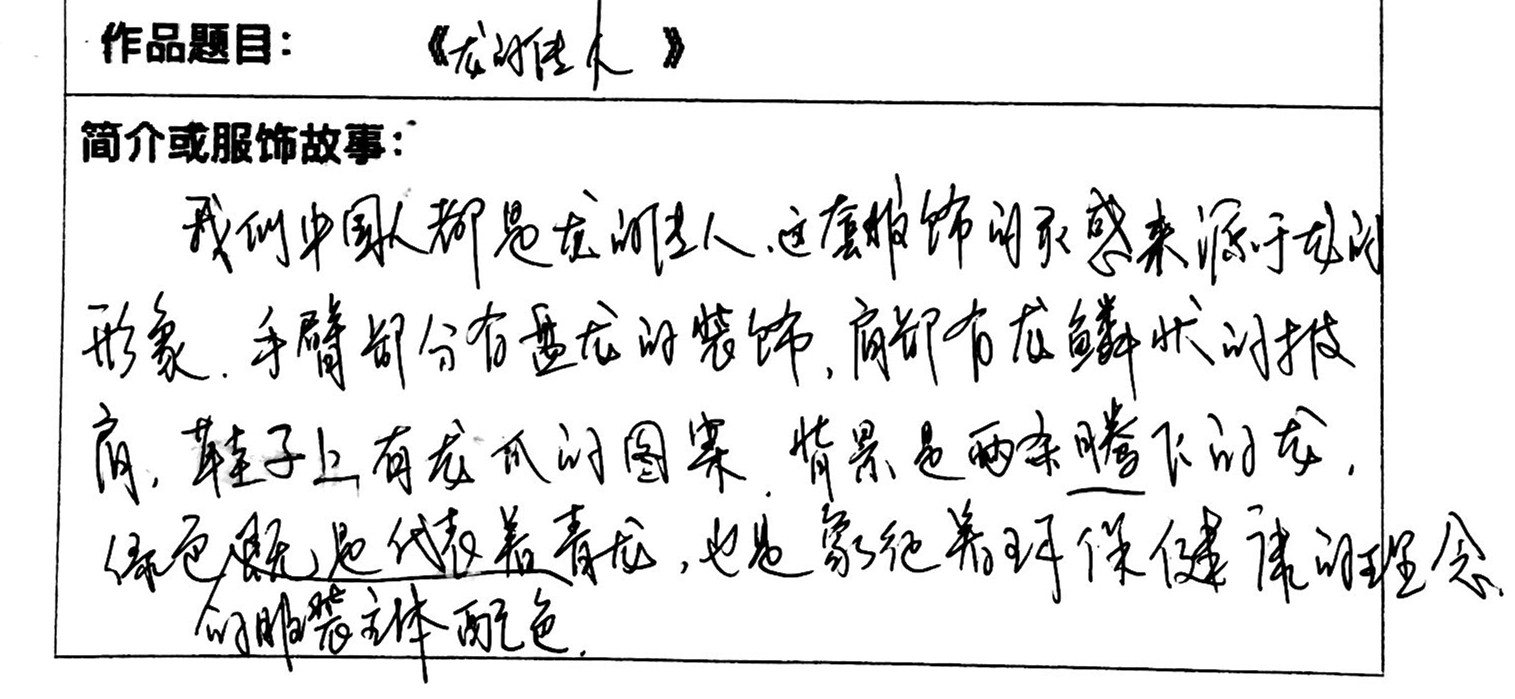 作品题目：《龙的传人》
简介或服饰故事：
我们中国人都是龙的传人、这套服饰的灵感来源于龙的
形象．手臂部分有盘龙的装饰，肩部有龙鳞状的披
肩，鞋子上有龙爪的图案．背景是两条腾飞的龙，
绿色既是代表着青龙，也是象征着环保健康的理念．
的服装主体配色．